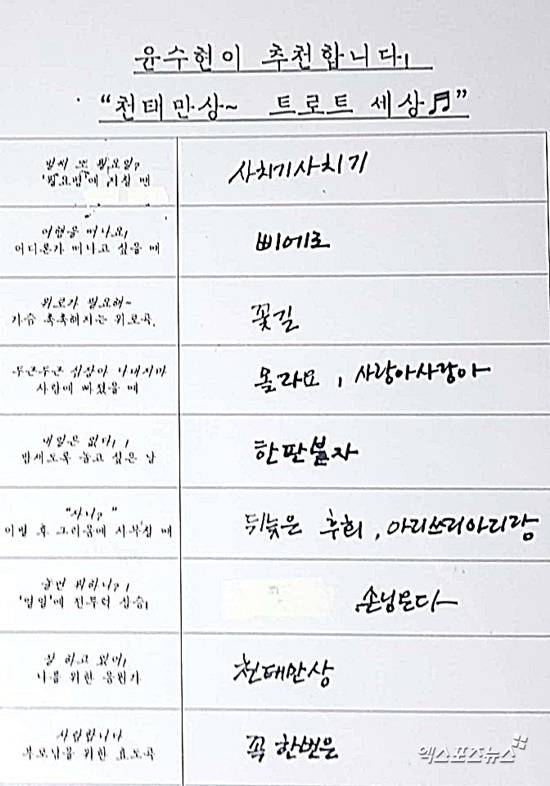 윤수현이 추천합니다!
“천태만상~ 트로트 세상♬”
벌써 또 월요일?
'월요병'에 지칠 땐
사치기사치기
여행을 떠나요!
어디론가 떠나고 싶을 때
삐에로
위로가 필요해~
가슴 촉촉해지는 위로곡.
꽃길
두근두근 심장아 나대지마
사랑에 빠졌을 때
몰라요, 사랑아사랑아
내일은 없다!!
밤새도록 놀고 싶은 날
한판불자
"자니?"
이별 후 그리움에 사무칠 때
뒤늦은 후회, 아리쓰리아리랑
놀면 뭐하니?!
'열일'에 전투력 상승!
손님온다
잘 하고 있어!
나를 위한 응원가
천태만상
사랑합니다
부모님을 위한 효도곡
꼭 한번은
엑스포츠뉴스